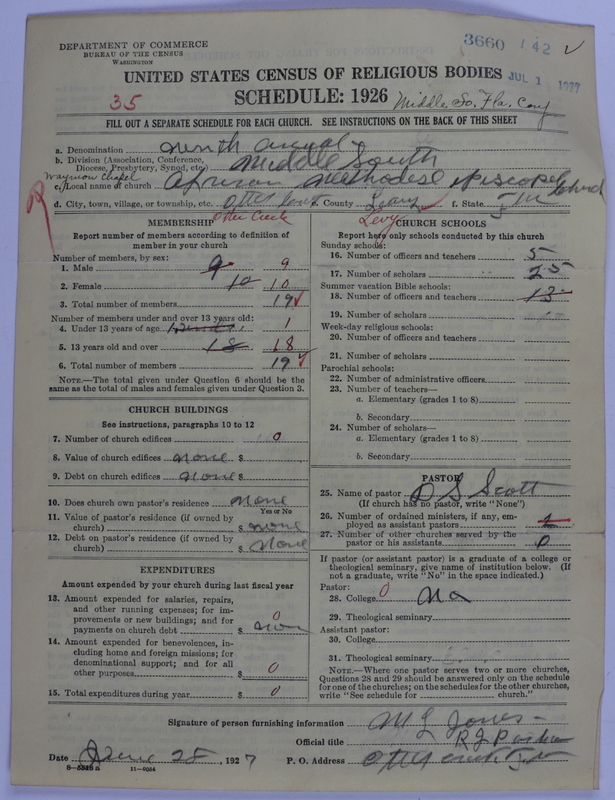 3660 142
DEPARTMENT OF COMMERCE
BUREAU OF THE CENSUS
WASHINGTON
UNITED STATES CENSUS OF RELIGIOUS BODIES
JUL 1 1927
35
SCHEDULE: 1926
Middle So. Fla. Conf
FILL OUT A SEPARATE SCHEDULE FOR EACH CHURCH. SEE INSTRUCTIONS ON THE BACK OF THIS SHEET
a. Denomination
b. Division (Association, Conference, Diocese, Presbytery, Synod, etc.) Middle South
c. Local name of church African Methodise episcopel
d. City, town, village, or township, etc. e. County f. State
Otter Creek Levy
MEMBERSHIP
Report number of members according to definition of
member in your church
Number of members, by sex:
1. Male 9 9
2. Female 10 10
3. Total number of members 19
Number of members under and over 13 years old:
4. Under 13 years of age 1
5. 13 years old and over 18 18
6. Total number of members 19
NOTE.—The total given under Question 6 should be
the same as the total of males and females given under Question 3.
CHURCH BUILDINGS
See instructions, paragraphs 10 to 12
7. Number of church edifices 0
8. Value of church edifices none $
9. Debt on church edifices none $
10. Does church own pastor's residence none
Yes or No
11. Value of pastor's residence (if owned by
church) $ none
12. Debt on pastor's residence (if owned by
church) $ None
EXPENDITURES
Amount expended by your church during last fiscal year
13. Amount expended for salaries, repairs,
and other running expenses; for im-
provements or new buildings; and for
payments on church debt $ 0
14. Amount expended for benevolences, in-
cluding home and foreign missions; for
denominational support; and for all
other purposes $ 0
15. Total expenditures during year $ 0
CHURCH SCHOOLS
Report here only schools conducted by this church
Sunday schools:
16. Number of officers and teachers 5
17. Number of scholars 25
Summer vacation Bible schools:
18. Number of officers and teachers
19. Number of scholars
Week-day religious schools:
20. Number of officers and teachers
21. Number of scholars
Parochial schools:
22. Number of administrative officers
23. Number of teachers—
a. Elementary (grades 1 to 8)
b. Secondary
24. Number of scholars—
a. Elementary (grades 1 to 8)
b. Secondary
PASTOR
25. Name of pastor D S Scott
(If church has no pastor, write "None")
26. Number of ordained ministers, if any, em-
ployed as assistant pastors
27. Number of other churches served by the
pastor or his assistants 0
If pastor (or assistant pastor) is a graduate of a college or
theological seminary, give name of institution below. (If
not a graduate, write "No" in the space indicated.)
Pastor:
28. College 0 No
29. Theological seminary
Assistant pastor:
30. College
31. Theological seminary
NOTE.—Where one pastor serves two or more churches,
Questions 28 and 29 should be answered only on the schedule
for one of the churches; on the schedules for the other churches,
write "See schedule for church."
Signature of person furnishing information M L Jones
Official title
Date June 28, 1927 P. O. Address
11—9034